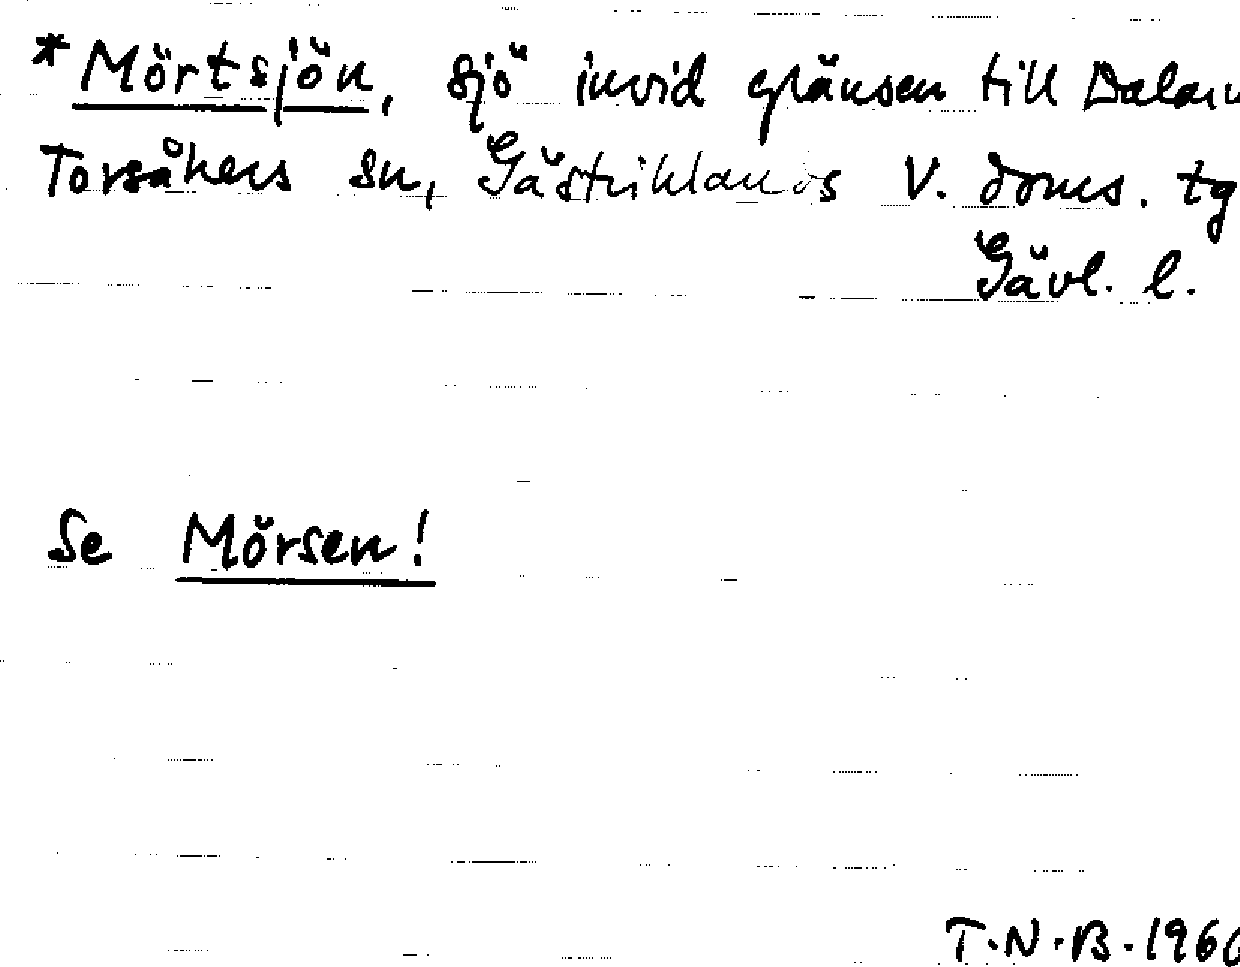 *Mörtsjön, sjö invid gränsen till Dalarn
Torsåkers sn, Gästriklands V. doms. tg
Gävl. l.
Se Mörsen!
T.N.B. 1966